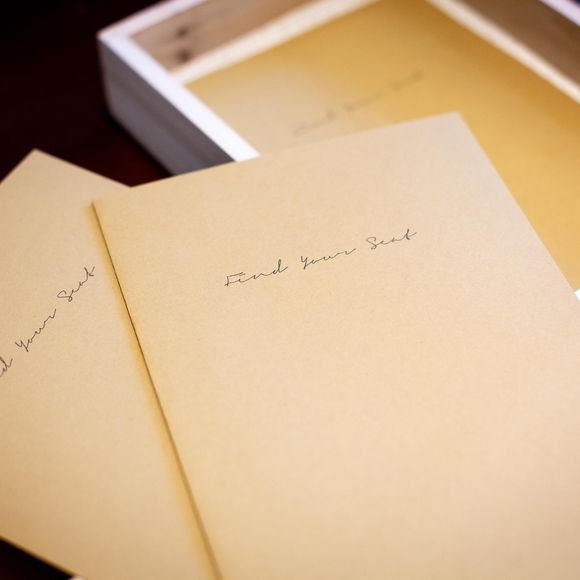 Find Your Seat
Find Your Seat
d Your Seat